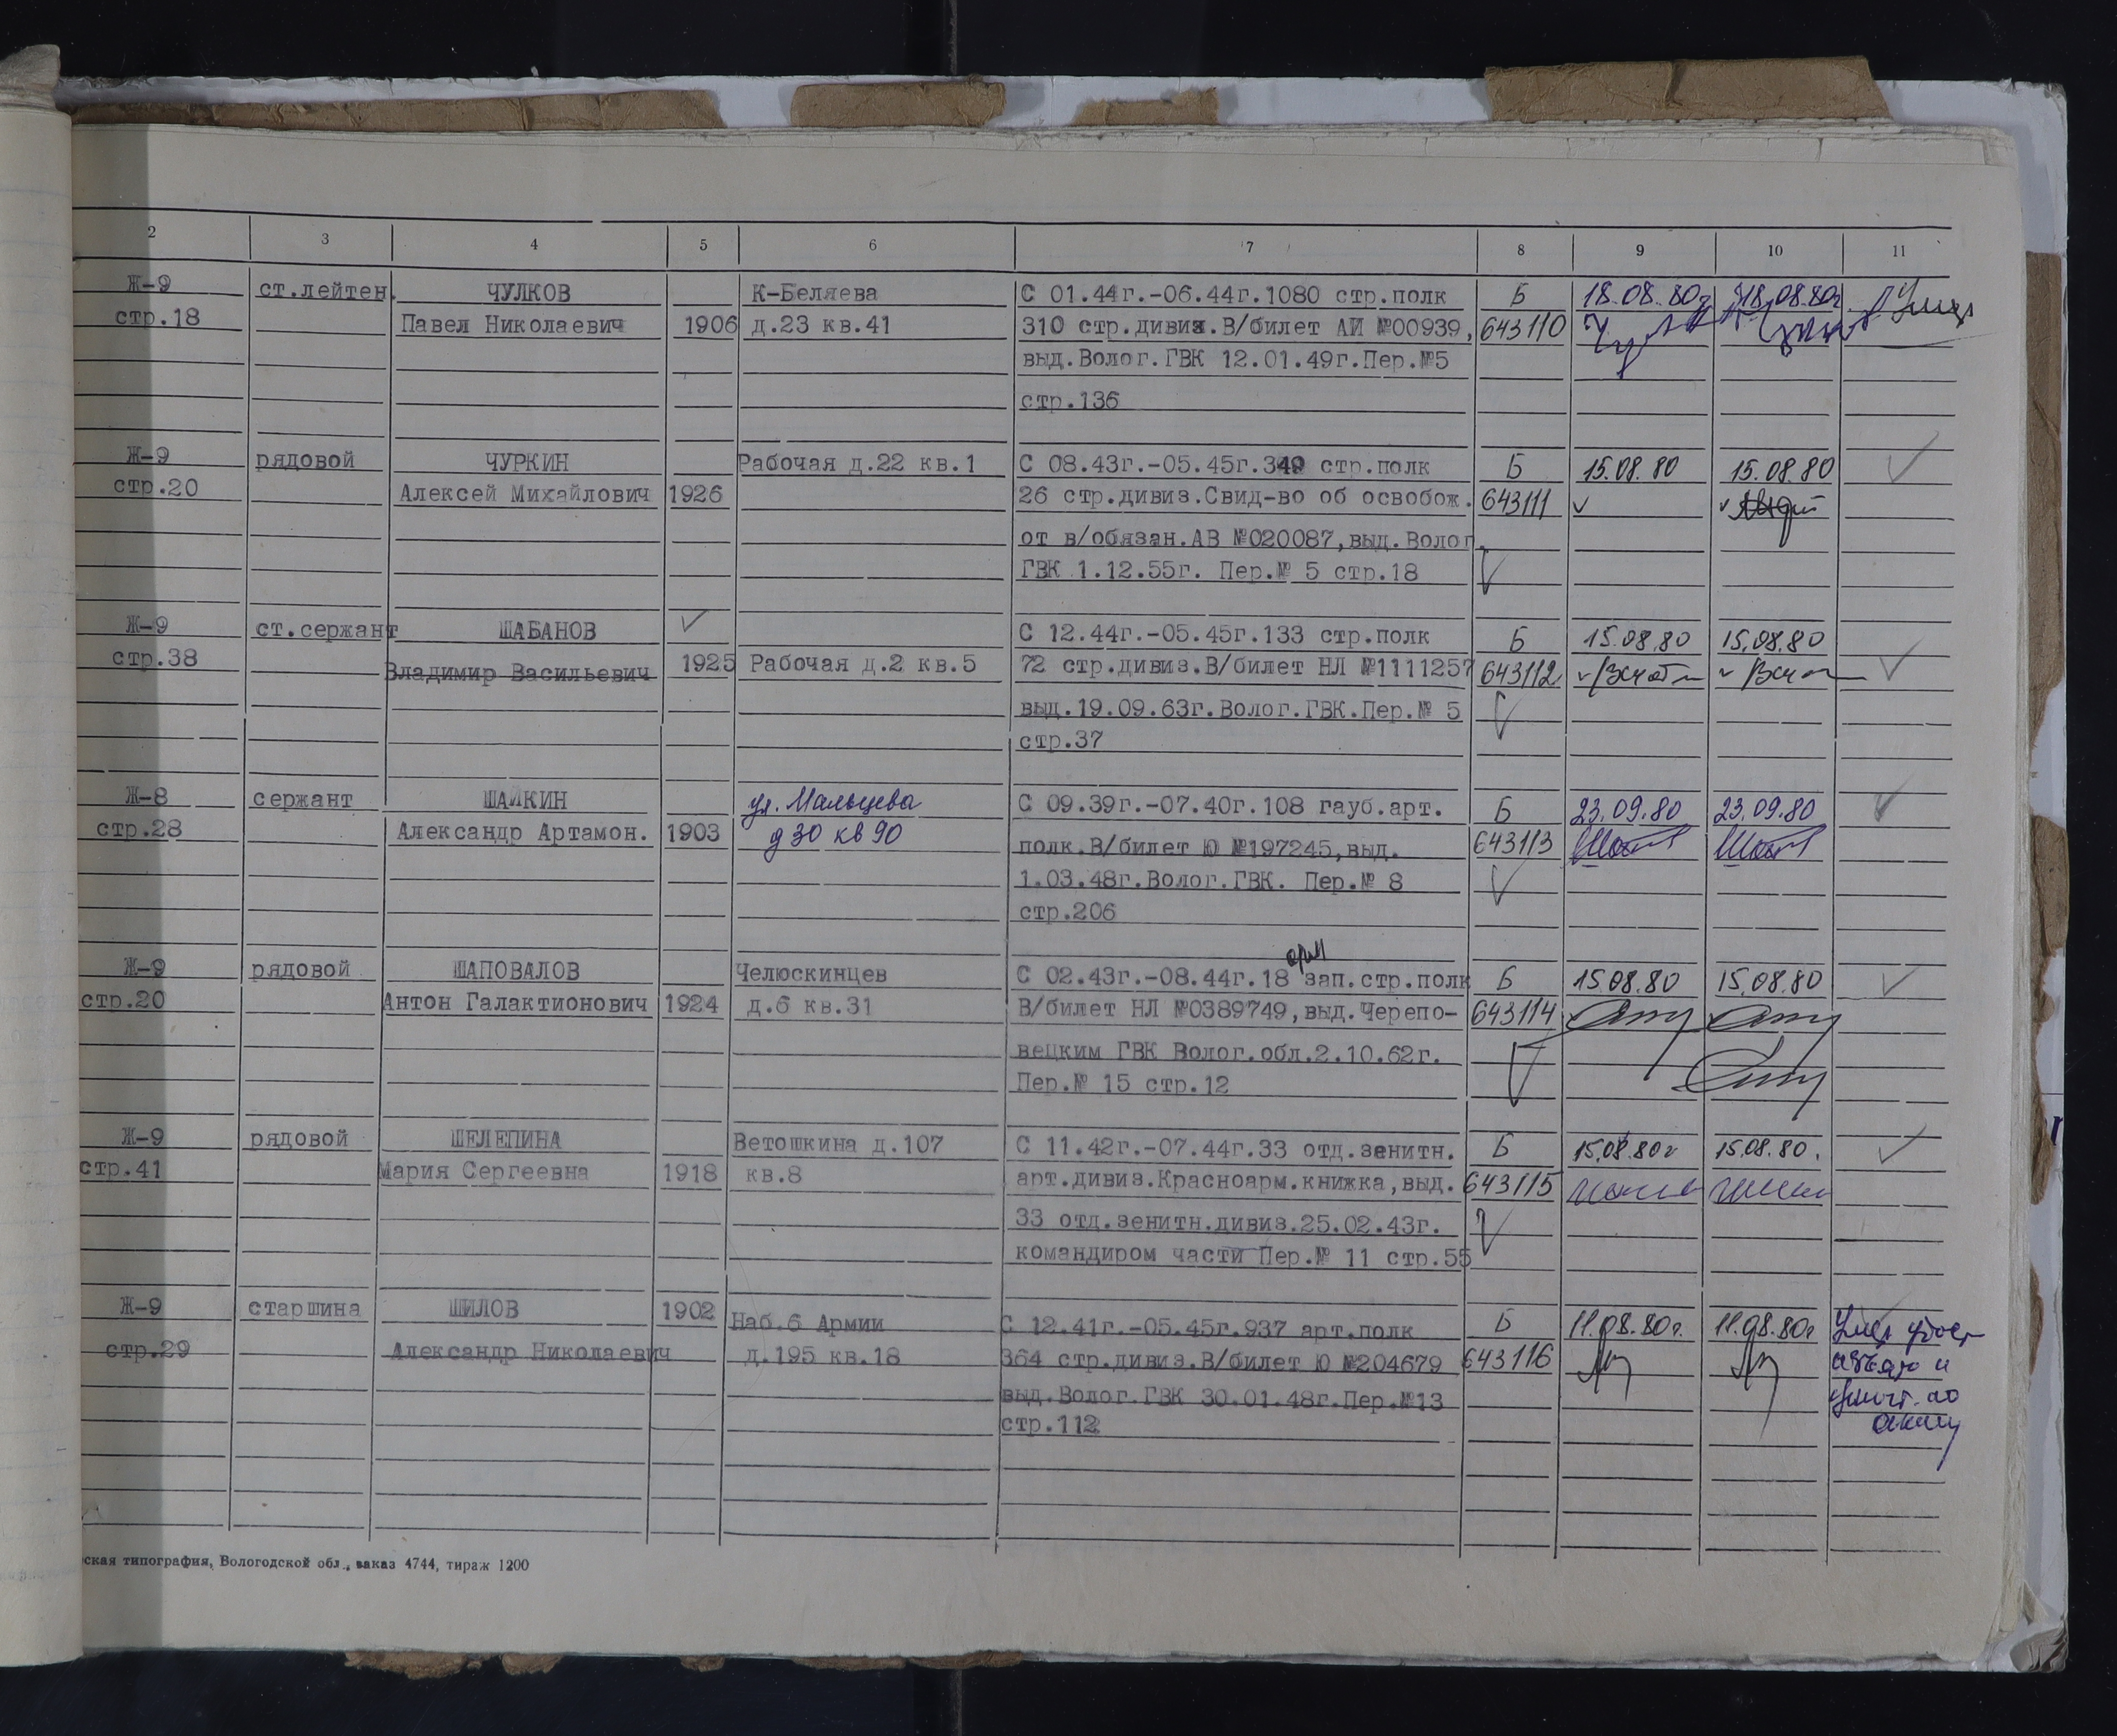 2 3 4 5 6 7 8 9 10 11
Ж-9 ст.лейтен. ЧУЛКОВ К-Беляева С 01.44г.-06.44г.1080 стр.полк Б 18.08.80г 18.08.80г
стр.18 Павел Николаевич 1906 д.23 кв.41 310 стр.дивиз.В/билет АИ №00939, 643110
выд.Волог.ГВК 12.01.49г.Пер.№5
стр.136
Ж-9 рядовой ЧУРКИН Рабочая д.22 кв.1 С 08.43г.-05.45г.349 стр.полк Б 15.08.80 15.08.80
стр.20 Алексей Михайлович 1926 26 стр.дивиз.Свид-во об освобож. 643111
от в/обязан.АВ №020087,выд.Волог.
ГВК 1.12.55г. Пер.№ 5 стр.18
Ж-9 ст.сержант ШАБАНОВ С 12.44г.-05.45г.133 стр.полк Б 15.08.80 15.08.80
стр.38 Владимир Васильевич 1925 Рабочая д.2 кв.5 72 стр.дивиз.В/билет НЛ №1111257 643112
выд.19.09.63г.Волог.ГВК.Пер.№ 5
стр.37
Ж-8 сержант ШАЙКИН ул. Мальцева С 09.39г.-07.40г.108 гауб.арт. Б 23.09.80 23.09.80
стр.28 Александр Артамон. 1903 д 30 кв 90 полк.В/билет Ю №197245,выд. 643113
1.03.48г.Волог.ГВК. Пер.№ 8
стр.206
арм
Ж-9 рядовой ШАПОВАЛОВ Челюскинцев С 02.43г.-08.44г.18 зап.стр.полк Б 15.08.80 15.08.80
стр.20 Антон Галактионович 1924 д.6 кв.31 В/билет НЛ №0389749,выд.Черепо- 643114
вецким ГВК Волог.обл.2.10.62г.
Пер.№ 15 стр.12
Ж-9 рядовой ШЕЛЕПИНА Ветошкина д.107 С 11.42г.-07.44г.33 отд.зенитн. Б 15.08.80г 15.08.80.
стр.41 Мария Сергеевна 1918 кв.8 арт.дивиз.Красноарм.книжка,выд. 643115
33 отд.зенитн.дивиз.25.02.43г.
командиром части Пер.№ 11 стр.55
Ж-9 старшина ШИЛОВ 1902 Наб.6 Армии С 12.41г.-05.45г.937 арт.полк Б 11.08.80г. 11.08.80г
стр.29 Александр Николаевич д.195 кв.18 364 стр.дивиз.В/билет Ю №204679 643116
выд.Волог.ГВК 30.01.48г.Пер.№13
стр.112
ская типография, Вологодской обл., заказ 4744, тираж 1200